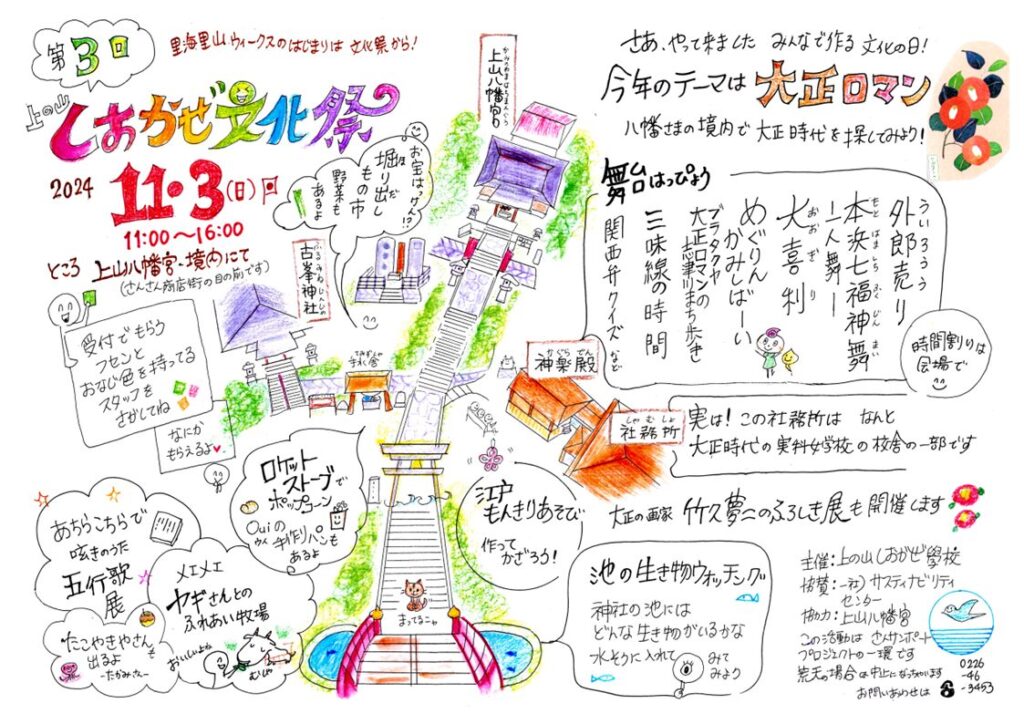 第3回
里海里山ウィークスのはじまりは 文化祭から!
上の山
しおかぜ文化祭
2024
11・3(日)
11:00〜16:00
ところ 上山八幡宮・境内にて
(さんさん商店街の目の前です)
受付でもらう
フセンと
おなじ色を持ってる
スタッフを
さがしてね
なにか
もらえるよ
かみのやまはちまんぐう
上山八幡宮
お宝はっけん!?
掘り出し
もの市
野菜も
あるよ
ふるみねじんじゃ
古峯神社
てみずしゃ
手水舎
さあ、やって来ました みんなで作る 文化の日!
今年のテーマは 大正ロマン
八幡さまの境内で 大正時代を探してみよう!
舞台はっぴょう
ういろううり
外郎売り
もとはましちふくじんまい
本浜七福神舞
ー一人舞ー
おおぎり
大喜利
めぐりん
かみしばーい
ブラタクヤ
大正ロマンの
志津川まち歩き
三味線の時間
関西弁クイズ など
時間割りは
会場で
かぐらでん
神楽殿
しゃむしょ
社務所
実は!この社務所は なんと
大正時代の実科女学校の校舎の一部です
大正の画家 竹久夢二のふろしき展も開催します
ロケット
ストーブで
ポップコーン
Ouiの
ウィ
手作りパンも
あるよ
江戸
もんきりあそび
作って
かざろう!
あちらこちらで
呟きのうた
五行歌
展
メェメェ
ヤギさんとの
ふれあい牧場
おいしいよね
むしゃ
たこやきやさんも
出るよ
ーたかみさんー
まってるニャ
池の生き物ウォッチング
神社の池には
どんな生き物がいるかな
水そうに入れて
みて
みよう
主催:上の山しおかぜ學校
協賛:一社)サスティナビリティ
センター
協力:上山八幡宮
この活動は さんサンポート
プロジェクトの一環です
荒天の場合は中止になっちゃいます
お問いあわせは
0226
-46
-3453